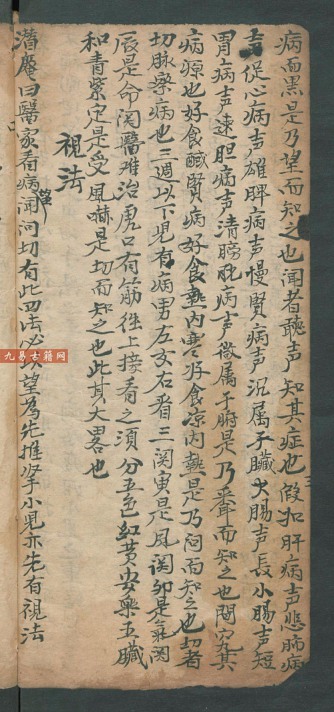 病面黑是乃望而知之也聞者聽声知其症也假如肝病声悲肺病
声促心病声雄脾病声慢腎病声沉属于臟大腸声長小腸声短
胃病声速胆病声清膀胱病声微属于腑是乃聞而知之也問究其
病源也好食鹹腎病好食熱內寒好食凉內熱是乃问而知之也切者
切脉察病也三週以下児有病男左女右看三関寅是風関卯是氣関
辰是命関醫难治虎口有筋徃上接看之須分五色紅黄安樂五臟
和青紫定是受風嚇是切而知之也此其大畧也
視法
潜菴曰醫家看病望聞问切有此四法必以望為先推拿小児亦先有視法
九易古籍网